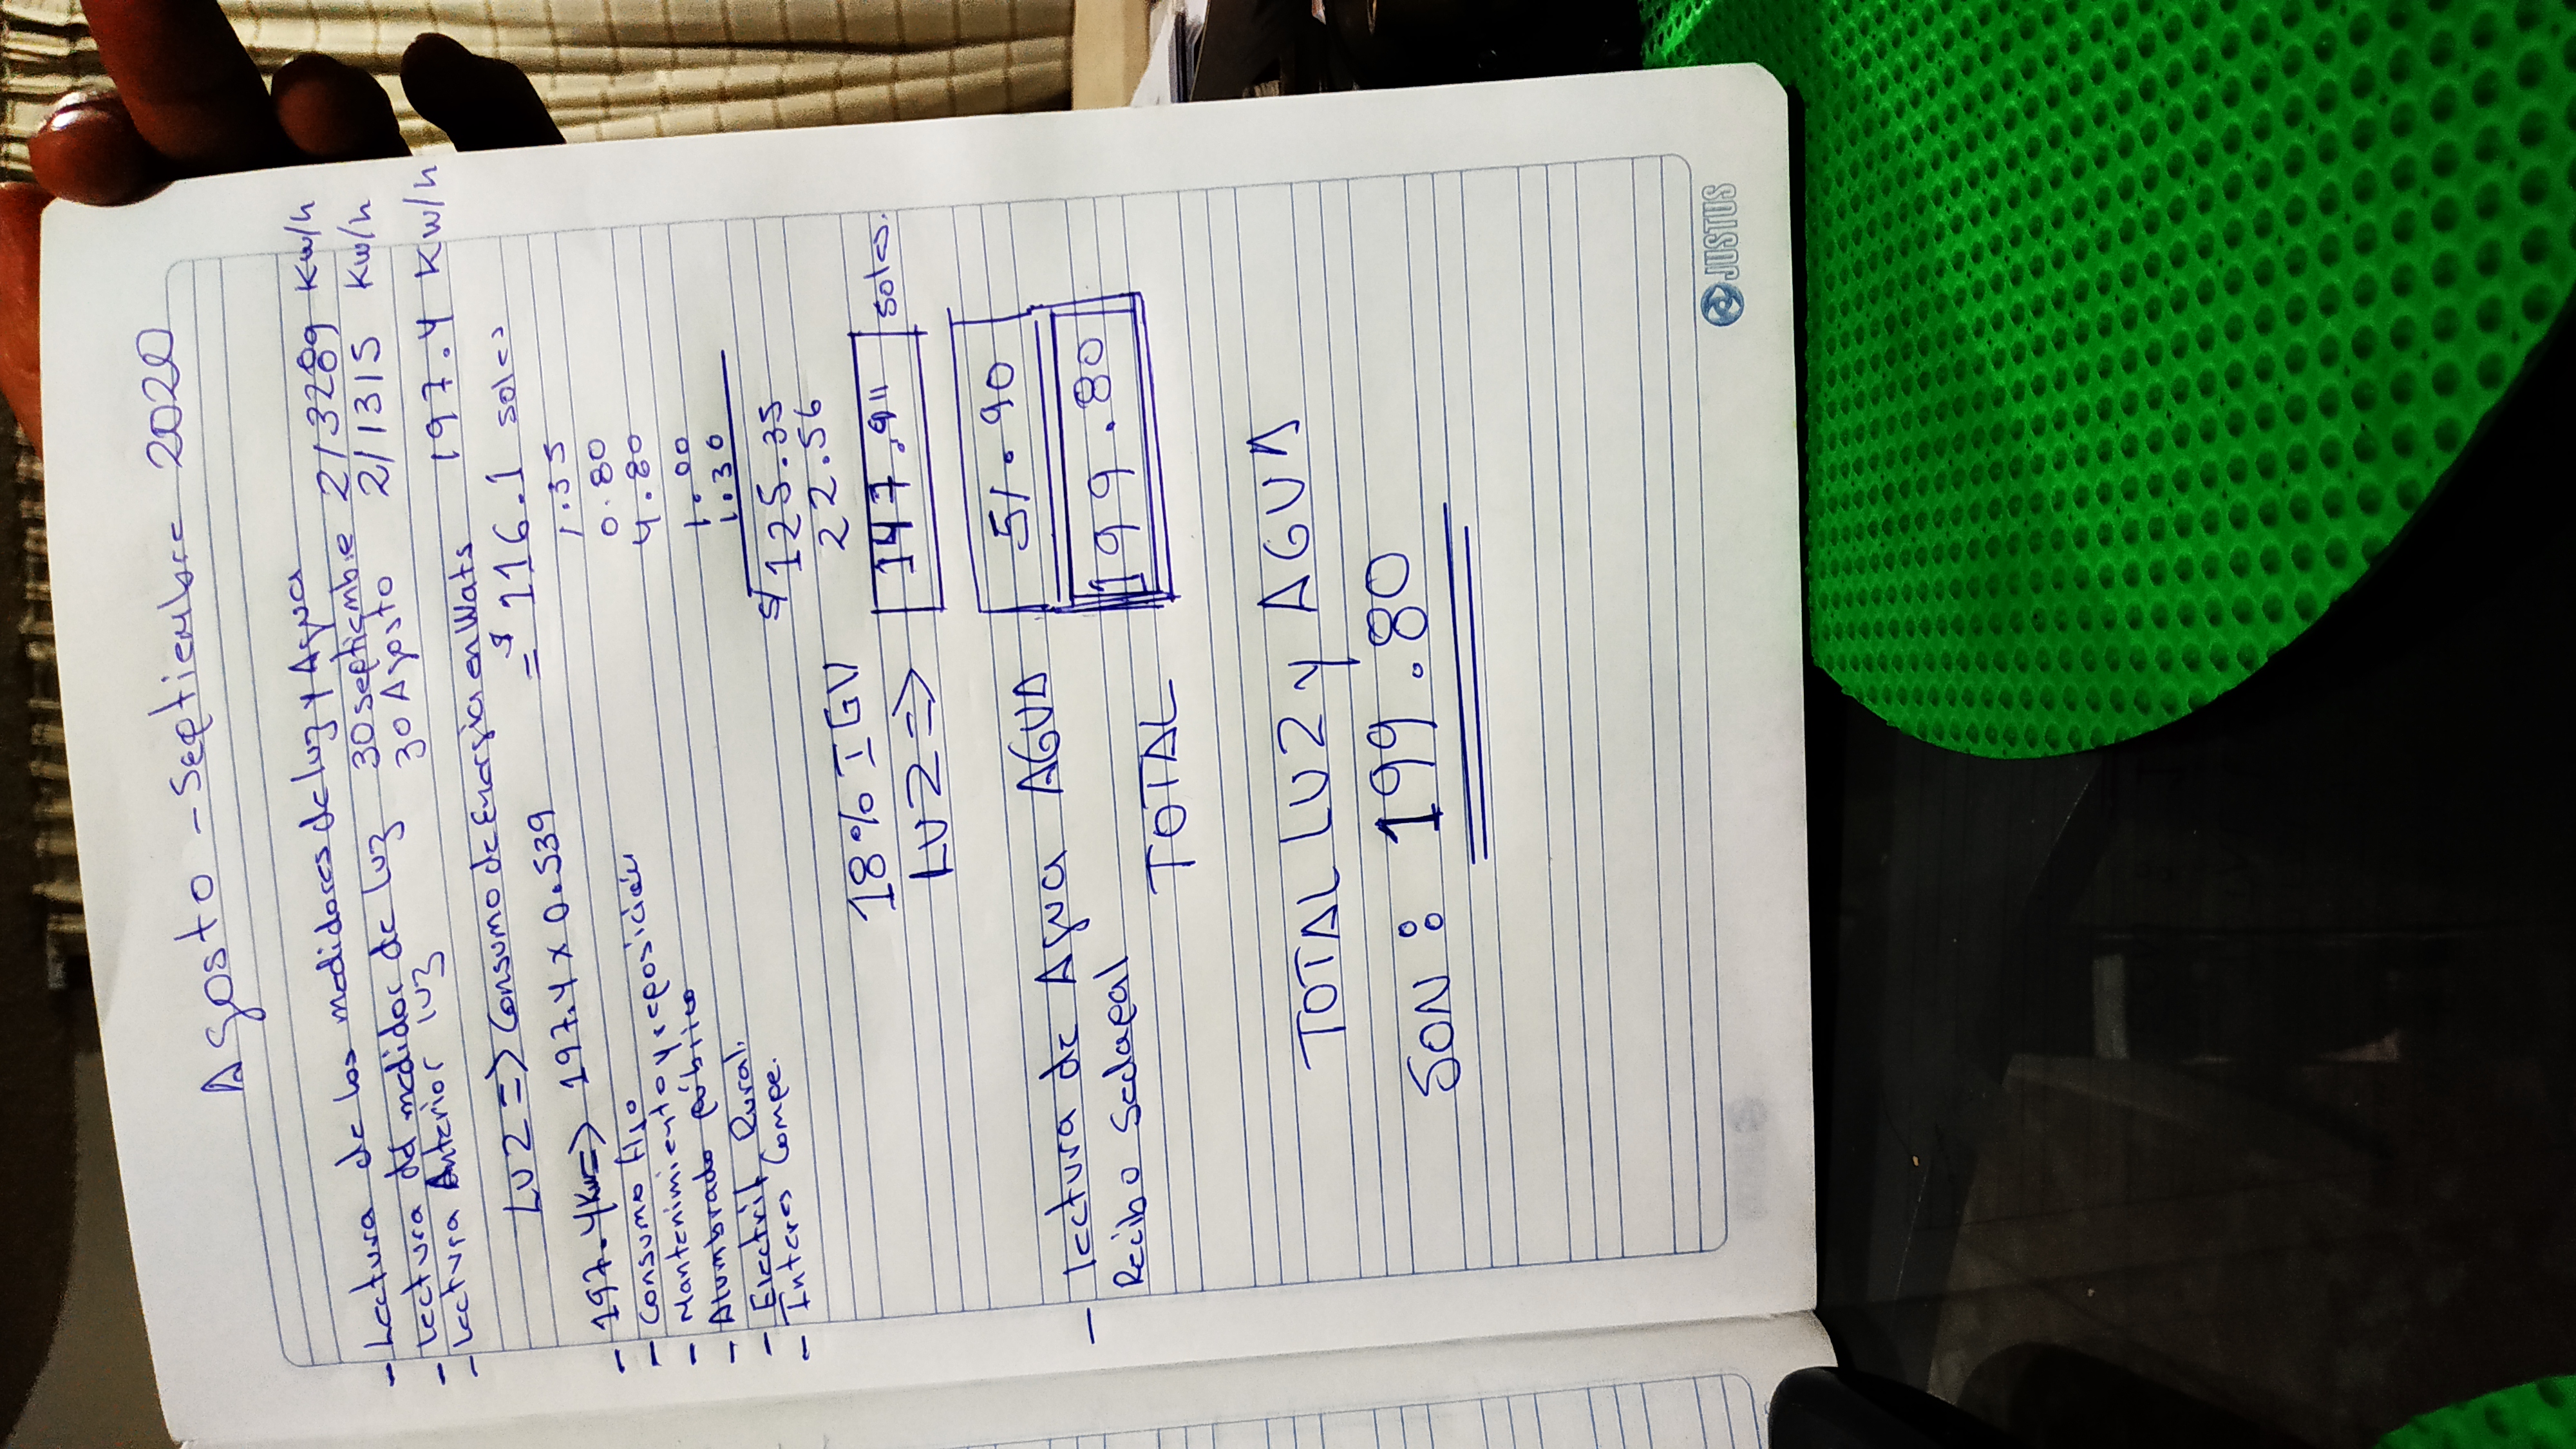 Agosto - Septiembre 2020
- Lectura de los medidores de luz y Agua
- Lectura del medidor de luz 30 septiembre 2/3289 Kw/h
- Lectura Anterior luz 30 Agosto 2/1315 Kw/h
LUZ => Consumo de Energia en Wats 197.4 Kw/h
- 197.4Kw=> 197.4 x 0.539 = $ 116.1 soles
- Consumo fijo 1.35
- Mantenimiento y reposición 0.80
- Alumbrado público 4.80
- Electrif. Rural. 1.00
- Interes Compe. 1.30
S/ 125.35
18% IGV 22.56
LUZ => 147.9 soles.
- Lectura de Agua AGUA 51.90
Recibo Sedapal
TOTAL 199.80
TOTAL LUZ y AGUA
SON: 199.80
JUSTUS